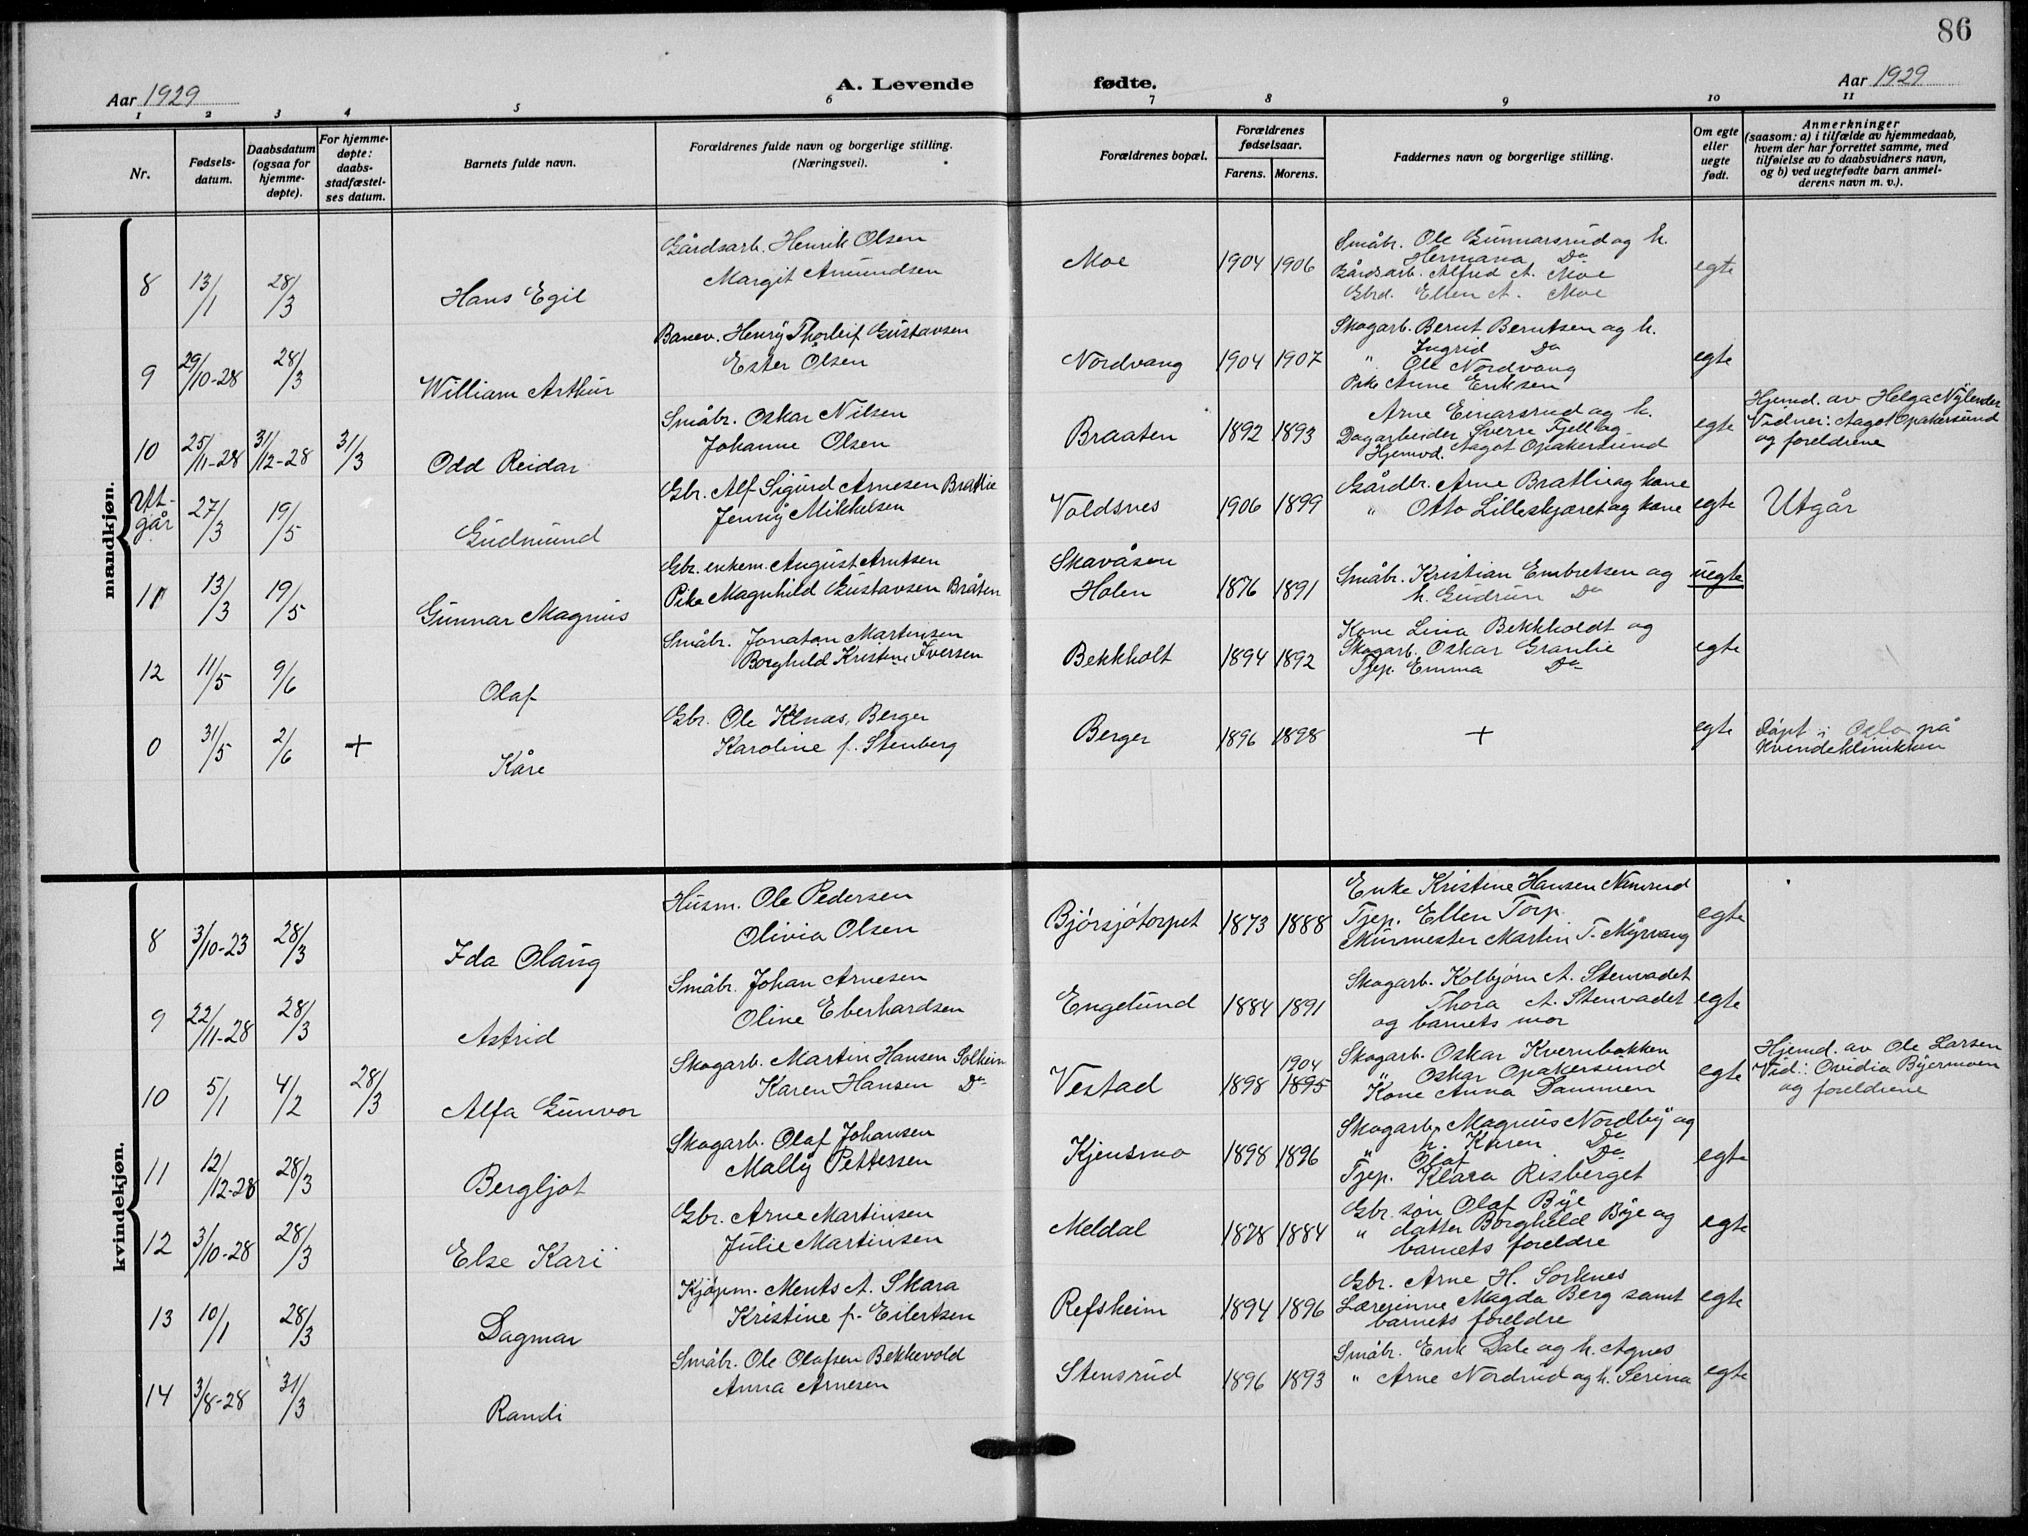 86
Aar 1929
A. Levende
fødte.
Aar 1929
1 2 3 4 5 6 7 8 9 10 11
Nr.
Fødsels-
datum.
Daabsdatum
(ogsaa for
hjemme-
døpte).
For hjemme-
døpte:
daabs-
stadfæstel-
ses datum.
Barnets fulde navn.
Forældrenes fulde navn og borgerlige stilling.
(Næringsvei).
Forældrenes bopæl.
Forældrenes
fødselsaar.
Farens. Morens.
Faddernes navn og borgerlige stilling.
Om egte
eller
uegte
født.
Anmerkninger
(saasom: a) i tilfælde av hjemmedaab,
hvem der har forrettet samme, med
tilføielse av to daabsvidners navn,
og b) ved uegtefødte barn anmel-
derens navn m. v.).
mandkjøn.
8 13/1 28/3 Hans Egil
Gårdsarb. Henrik Olsen
Margit Amundsen
Moe 1904 1906
Småbr. Ole Gunnarsrud og h.
Hermana Do
Gårdsarb. Alfred A. Moe
Gbrd. Ellen A. Moe
egte
9 29/10-28 28/3 William Arthur
Banev. Henry Thorleif Gustavsen
Ester Olsen
Nordvang 1904 1907
Skogarb. Bernt Berntsen og h.
Ingrid Do
" Ole Nordvang
Pike Anne Eriksen
egte
10 25/11-28 31/12-28 31/3 Odd Reidar
Småbr. Oskar Nilsen
Johanne Olsen
Braaten 1892 1893
Arne Einarsrud og h.
Dagarbeider Sverre Fjell og
Hjemvd. Aagot Opakersund
egte
Hjemd. av Helga Nylender
Vidner: Aagot Opakersund
og foreldrene
Ut-
går 27/3 19/5 Gudmund
Gbr. Alf Sigurd Arnesen Bratlie
Jenny Mikkelsen
Voldsnes 1906 1899
Gårdbr. Arne Bratlie og kone
" Otto Lilleskjæret og kone
egte Utgår
11 13/3 19/5 Gunnar Magnus
Gbr. enkem. August Arntsen
Pike Magnhild Gustavsen Bråten
Skavåsen
Holen 1876 1891
Småbr. Kristian Embretsen og
h. Gudrun Do
uegte
12 11/5 9/6 Olaf
Småbr. Jonatan Martinsen
Borghild Kristine Iversen
Bekkholt 1894 1892
Kone Lina Bekkholdt og
Skogarb. Oskar Granlie
Tjep. Emma Do
egte
0 31/5 2/6 + Kåre
Gbr. Ole Klnas. Berger
Karoline f. Stenberg
Berger 1896 1898 +
egte
Døpt i Oslo på
Kvindeklinikken
kvindekjøn.
8 3/10-23 28/3 Ida Olaug
Husm. Ole Pedersen
Olivia Olsen
Bjørsjøtorpet 1873 1888
Enke Kristine Hansen Namrud
Tjep. Ellen Torp.
Murmester Martin T. Myrvang
egte
9 22/11-28 28/3 Astrid
Småbr. Johan Arnesen
Oline Eberhardsen
Engelund 1884 1891
Skogarb. Kolbjørn A. Stenvadet
Thora A. Stenvadet
og barnets mor
egte
10 5/1 4/2 28/3 Alfa Gunvor
Skogarb. Martin Hansen Solheim
Karen Hansen Do
Vestad 1898 1904
1895
Skogarb. Oskar Kvernbakken
" Oskar Opakersund
Kone Anna Dammen
egte
Hjemd. av Ole Larsen
Vid: Ovidia Byermoen
og foreldrene
11 12/12-28 28/3 Bergljot
Skogarb. Olaf Johansen
Mally Pettersen
Kjensmo 1898 1896
Skogarb. Magnus Nordby og
h. Karen Do
" Olaf Do
Tjep. Klara Risberget
egte
12 3/10-28 28/3 Else Kari
Gbr. Arne Martinsen
Julie Martinsen
Meldal 1878 1884
Gbr. søn Olaf Bye
" datter Borghild Bye og
barnets foreldre
egte
13 10/1 28/3 Dagmar
Kjøpm. Ments A. Skara
Kristine f. Eilertsen
Refsheim 1894 1896
Gbr. Arne H. Sorknes
Lærerinne Magda Berg samt
barnets foreldre
egte
14 3/8-28 31/3 Randi
Småbr. Ole Olafsen Bekkevold
Anna Arnesen
Stensrud 1896 1893
Småbr. Erik Dale og h. Agnes
" Arne Nordrud og h. Serina
egte